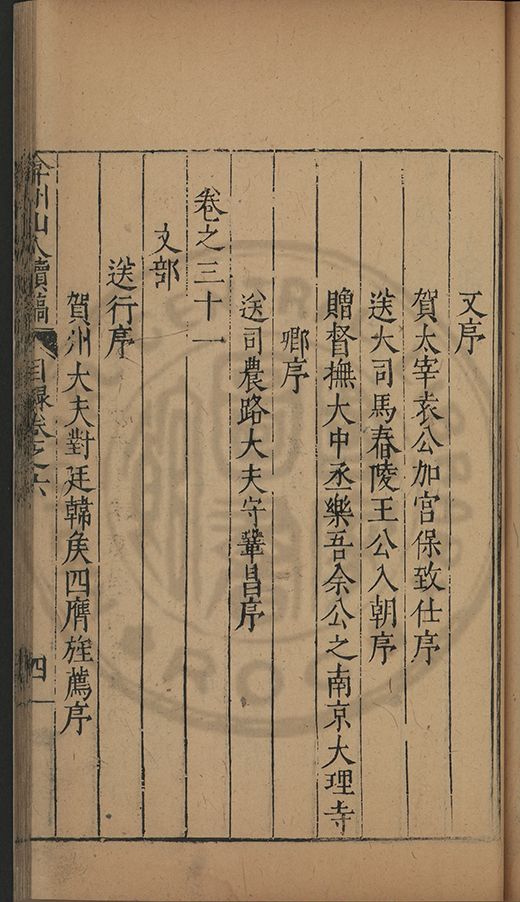 又序
賀太宰袁公加宮保致仕序
送大司馬舂陵王公入朝序
贈督撫大中丞樂吾余公之南京大理寺
卿序
送司農路大夫守鞏昌序
卷之三十一
文部
送行序
賀州大夫對廷韓侯四膺旌薦序
弇州山人續稿 目錄卷之六 四